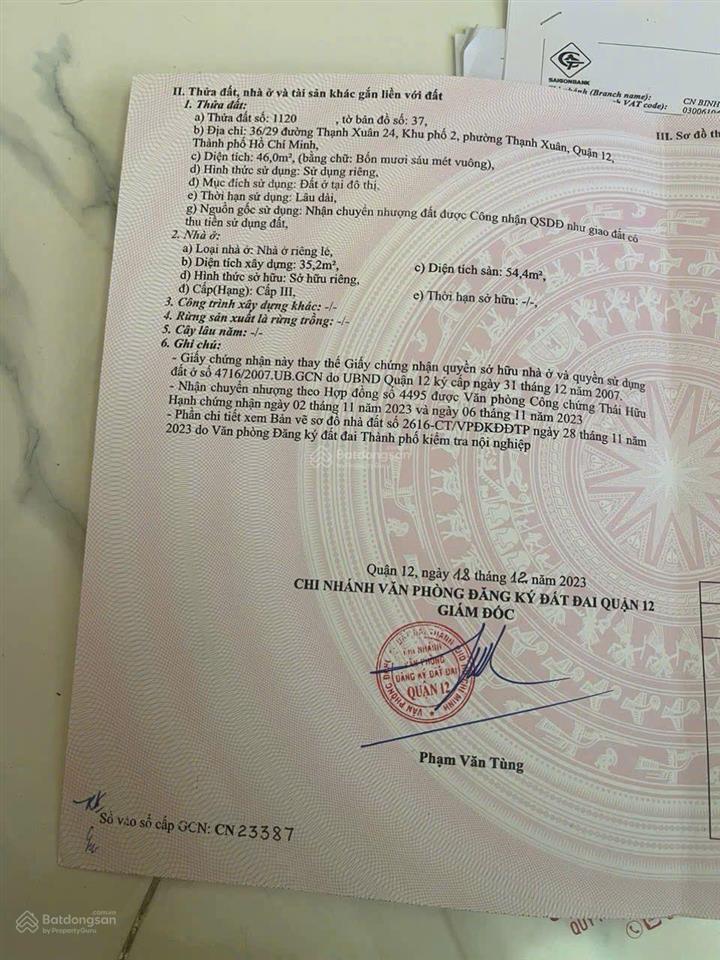 SAIGONBANK
nhánh (Branch name):
CN BINH
VAT code):
03006104
II. Thửa đất, nhà ở và tài sản khác gắn liền với đất
III. Sơ đồ th
1. Thửa đất:
a) Thửa đất số: 1120 , tờ bản đồ số: 37,
b) Địa chỉ: 36/29 đường Thạnh Xuân 24, Khu phố 2, phường Thạnh Xuân, Quận 12,
Thành phố Hồ Chí Minh,
c) Diện tích: 46,0m², (bằng chữ: Bốn mươi sáu mét vuông),
d) Hình thức sử dụng: Sử dụng riêng,
đ) Mục đích sử dụng: Đất ở tại đô thị,
e) Thời hạn sử dụng: Lâu dài,
g) Nguồn gốc sử dụng: Nhận chuyển nhượng đất được Công nhận QSDĐ như giao đất có
thu tiền sử dụng đất,
2. Nhà ở:
a) Loại nhà ở: Nhà ở riêng lẻ,
b) Diện tích xây dựng: 35,2m²,
c) Diện tích sàn: 54,4m²,
d) Hình thức sở hữu: Sở hữu riêng,
đ) Cấp(Hạng): Cấp III,
e) Thời hạn sở hữu: -/-,
3. Công trình xây dựng khác: -/-
4. Rừng sản xuất là rừng trồng: -/-
5. Cây lâu năm: -/-
6. Ghi chú:
- Giấy chứng nhận này thay thế Giấy chứng nhận quyền sở hữu nhà ở và quyền sử dụng
đất ở số 4716/2007.UB.GCN do UBND Quận 12 ký cấp ngày 31 tháng 12 năm 2007.
- Nhận chuyển nhượng theo Hợp đồng số 4495 được Văn phòng Công chứng Thái Hữu
Hạnh chứng nhận ngày 02 tháng 11 năm 2023 và ngày 06 tháng 11 năm 2023
- Phần chi tiết xem Bản vẽ sơ đồ nhà đất số 2616-CT/VPĐKĐĐTP ngày 28 tháng 11 năm
2023 do Văn phòng Đăng ký đất đai Thành phố kiểm tra nội nghiệp
Batdongsan
Quận 12, ngày 18 tháng 12 năm 2023
CHI NHÁNH VĂN PHÒNG ĐĂNG KÝ ĐẤT ĐAI QUẬN 12
GIÁM ĐỐC
CHI NHÁNH
VĂN PHÒNG
ĐĂNG KÝ ĐẤT ĐAI
QUẬN 12
Phạm Văn Tùng
Số vào sổ cấp GCN: CN 23387
Batdongsan.com.vn
by PropertyGuru